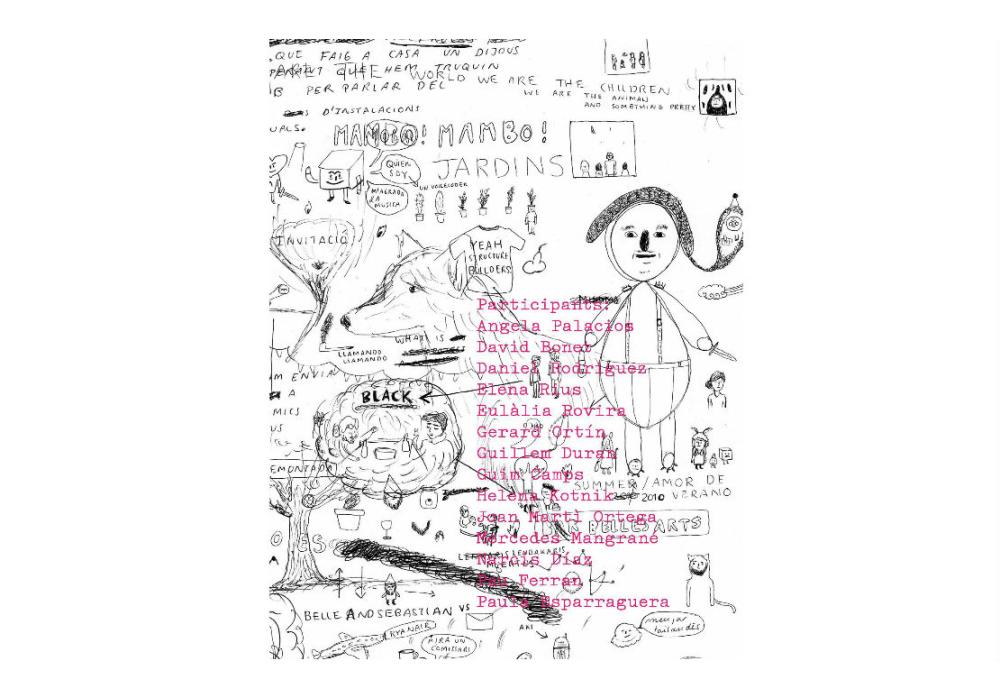 QUE FAIG A CASA UN DIJOUS
QUE HEM TRUQUIN
WORLD WE ARE THE CHILDREN
B PER PARLAR DEL
WE ARE THE ANIMALS
AND SOMETHING PRETTY
D'INSTALACIONS
MAMBO! MAMBO!
QUIEN
SOY
JARDINS
M'AGRADA
LA
MUSICA
INVITACIÓ
YEAH
STRUCTURE
BUILDERS
2009
Participants:
Angela Palacios
David Bonet
Daniel Rodríguez
Elena Rius
Eulàlia Rovira
Gerard Ortín
Guillem Duran
Guim Camps
Helena Kotnik
Joan Martì Ortega
Mercedes Mangrané
Narcís Díaz
Pau Ferran
Paula Esparraguera
WHAT IS
LLAMANDO
LLAMANDO
M ENVIA
A
BLACK
MICS
US
EMONTADA
SUMMER/AMOR DE
2010 VERANO
BELLES ARTS
BELLE AND SEBASTIAN VS
AKI
RYANAIR
FIRA UN
COMISSARI
menjar
tailandès